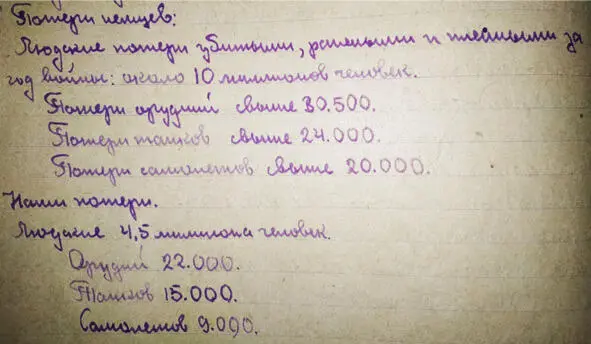 Потери немцев:
Людские потери убитыми, ранеными и пленными за
год войны: около 10 миллионов человек.
Потери орудий свыше 30.500.
Потери танков свыше 24.000.
Потери самолетов свыше 20.000.
Наши потери.
Людские 4,5 миллиона человек.
Орудий 22.000.
Танков 15.000.
Самолетов 9.000.